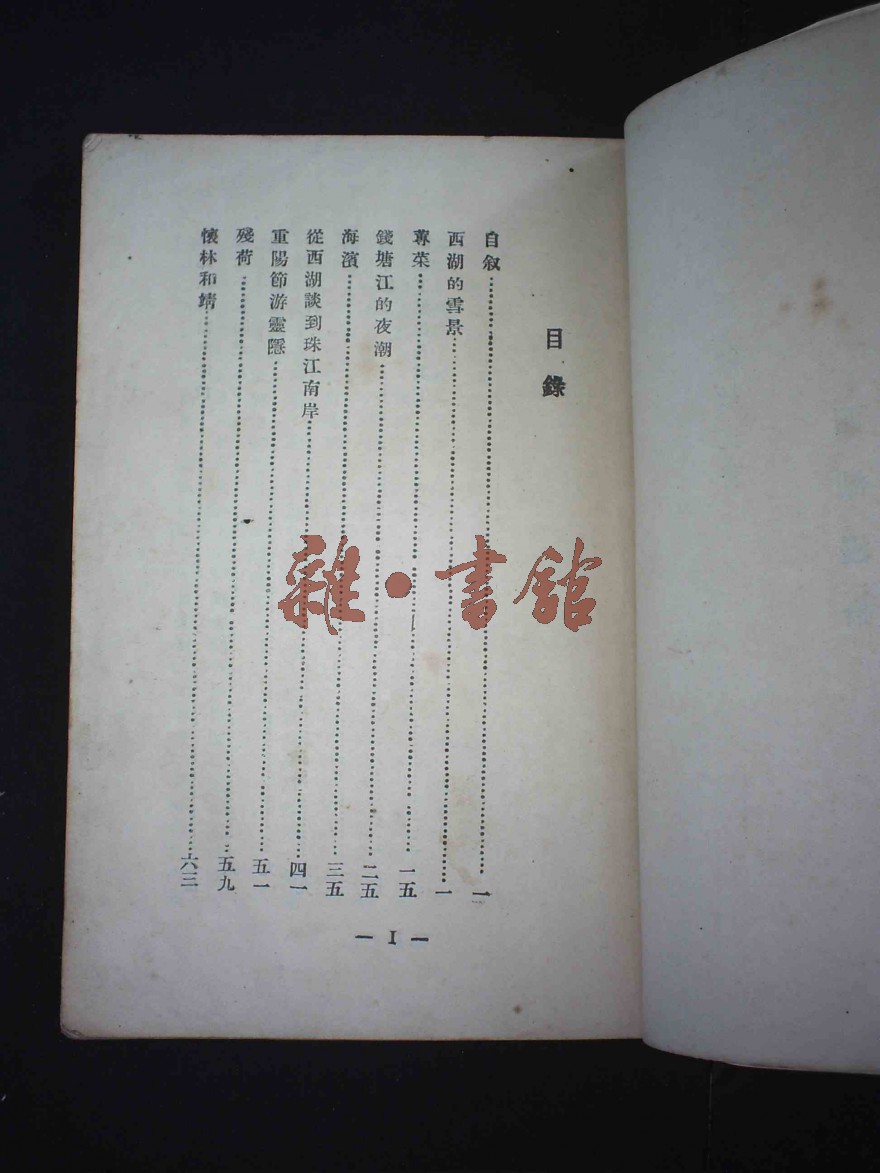 目錄
自敘……一
西湖的雪景……一
蓴菜……一五
錢塘江的夜潮……二五
海濱……三五
從西湖談到珠江南岸……四一
重陽節游靈隱……五一
殘荷……五九
懷林和靖……六三
— I —
雜·書館